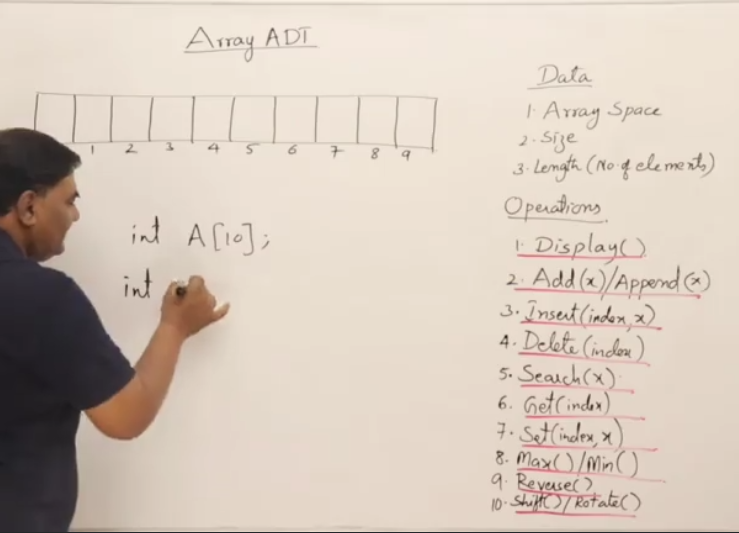 Array ADT
1 2 3 4 5 6 7 8 9
int A[10];
int
Data
1. Array Space
2. Size
3. Length (No. of elements)
Operations
1. Display()
2. Add(x)/Append(x)
3. Insert(index, x)
4. Delete(index)
5. Search(x)
6. Get(index)
7. Set(index, x)
8. Max()/Min()
9. Reverse()
10. Shift()/Rotate()